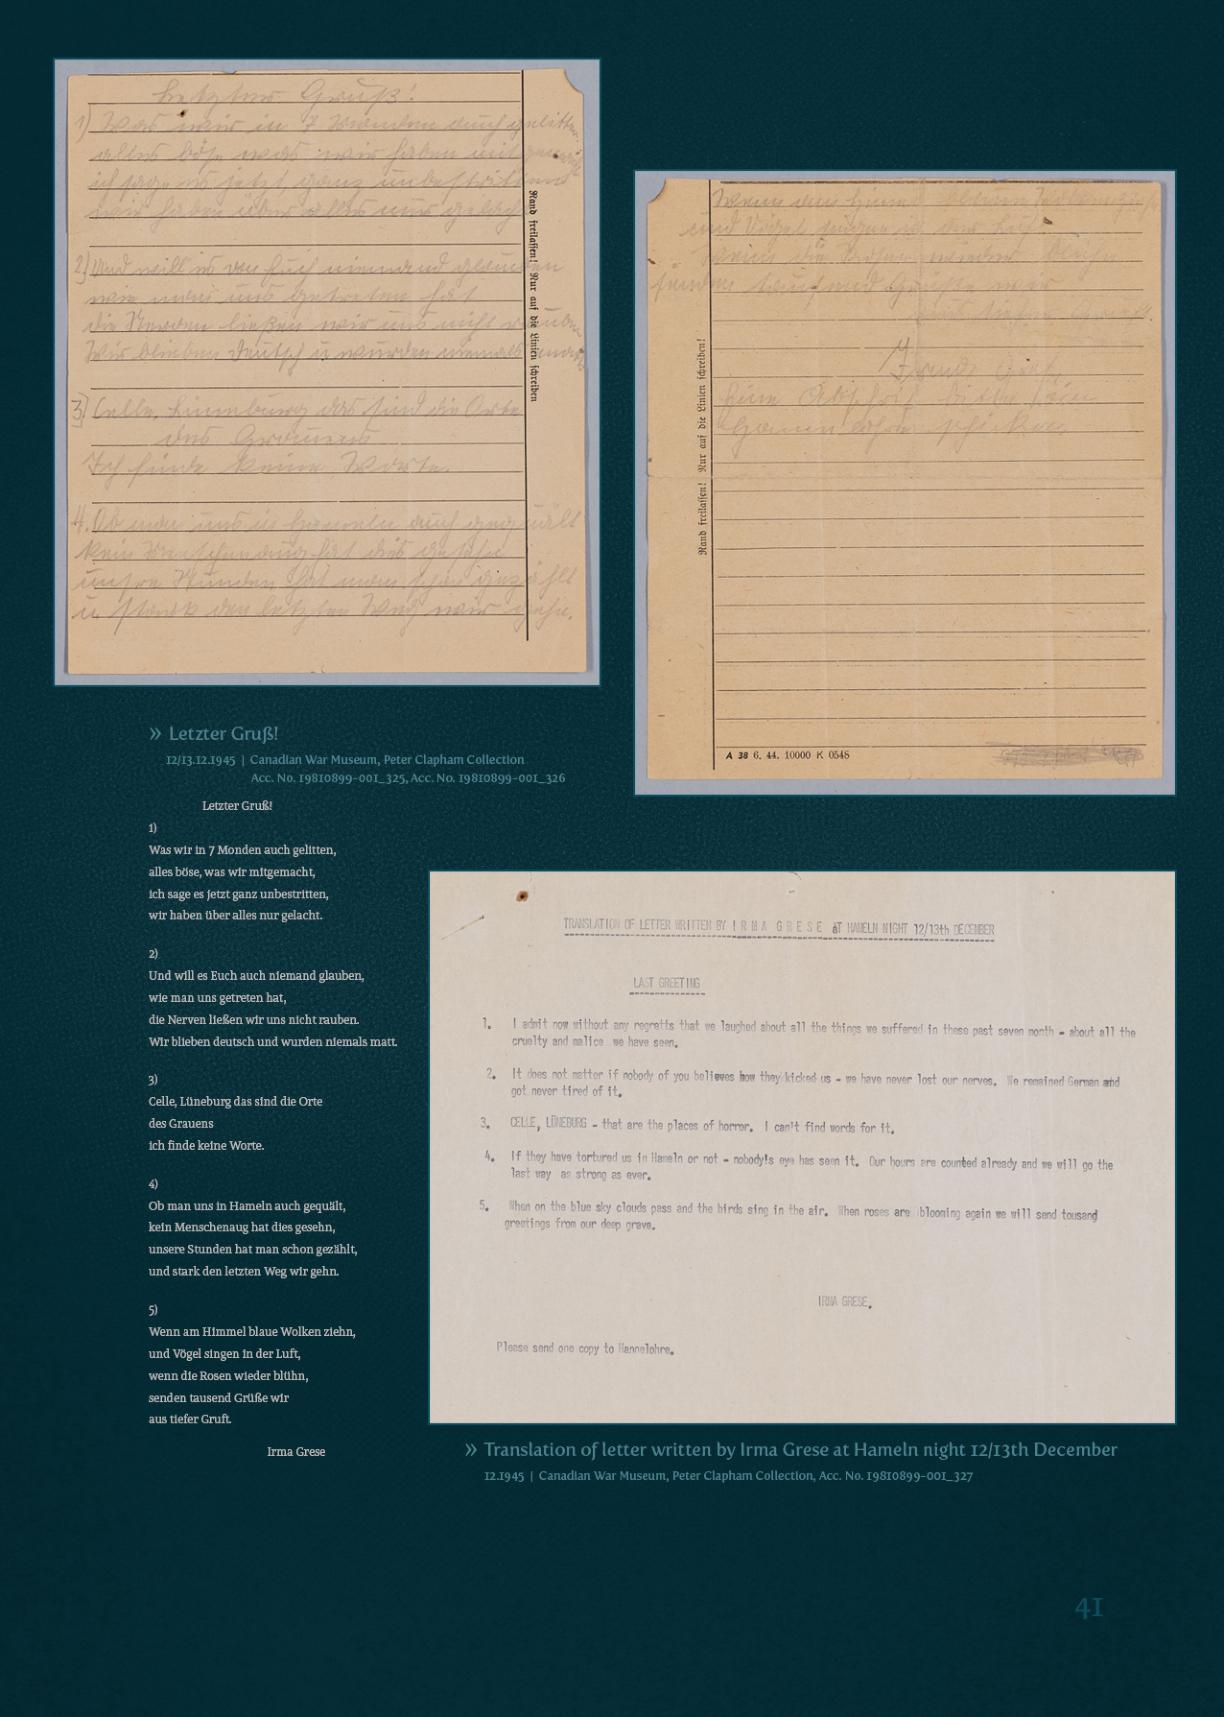 Letzter Gruß!
1) Was wir in 7 Monden auch gelitten,
alles böse was wir haben mitgemacht
ich sage es jetzt ganz unbestritten
wir haben über alles nur gelacht
2) Und will es von Euch niemand glauben
wie man uns getreten hat
die Nerven ließen wir uns nicht rauben
Wir blieben Deutsch u wurden niemals
3) Celle, Lüneburg das sind die Orte
des Grauens
Ich finde keine Worte.
4. Ob man uns in Hameln auch gequält
kein Menschenaug hat dies gesehn
unsre Stunden hat man schon gezählt
u stark den letzten Weg wir gehn.
Rand freilassen! Nur auf die Linien schreiben
Wenn am Himmel
und Vögel singen in der Luft
wenn die Rosen wieder blühn
senden tausend Grüße wir
aus tiefer Gruft.
Irma Grese
Eine Abschrift bitte an
schicken
Rand freilassen! Nur auf die Linien schreiben!
A 38 6. 44. 10000 K 0548
» Letzter Gruß!
12/13.12.1945 | Canadian War Museum, Peter Clapham Collection
Acc. No. 19810899-001_325, Acc. No. 19810899-001_326
Letzter Gruß!
1)
Was wir in 7 Monden auch gelitten,
alles böse, was wir mitgemacht,
ich sage es jetzt ganz unbestritten,
wir haben über alles nur gelacht.
2)
Und will es Euch auch niemand glauben,
wie man uns getreten hat,
die Nerven ließen wir uns nicht rauben.
Wir blieben deutsch und wurden niemals matt.
3)
Celle, Lüneburg das sind die Orte
des Grauens
ich finde keine Worte.
4)
Ob man uns in Hameln auch gequält,
kein Menschenaug hat dies gesehn,
unsere Stunden hat man schon gezählt,
und stark den letzten Weg wir gehn.
5)
Wenn am Himmel blaue Wolken ziehn,
und Vögel singen in der Luft,
wenn die Rosen wieder blühn,
senden tausend Grüße wir
aus tiefer Gruft.
Irma Grese
TRANSLATION OF LETTER WRITTEN BY I R M A G R E S E AT HAMELN NIGHT 12/13th DECEMBER
LAST GREETING
1. I admit now without any regretts that we laughed about all the things we suffered in these past seven month - about all the
cruelty and malice we have seen.
2. It does not matter if nobody of you believes how they kicked us - we have never lost our nerves. We remained German and
got never tired of it.
3. CELLE, LÜNEBURG - that are the places of horror. I can't find words for it.
4. If they have tortured us in Hameln or not - nobody's eye has seen it. Our hours are counted already and we will go the
last way as strong as ever.
5. When on the blue sky clouds pass and the birds sing in the air. When roses are blooming again we will send tousand
greetings from our deep grave.
IRMA GRESE.
Please send one copy to Hannelohre.
» Translation of letter written by Irma Grese at Hameln night 12/13th December
12.1945 | Canadian War Museum, Peter Clapham Collection, Acc. No. 19810899-001_327
41